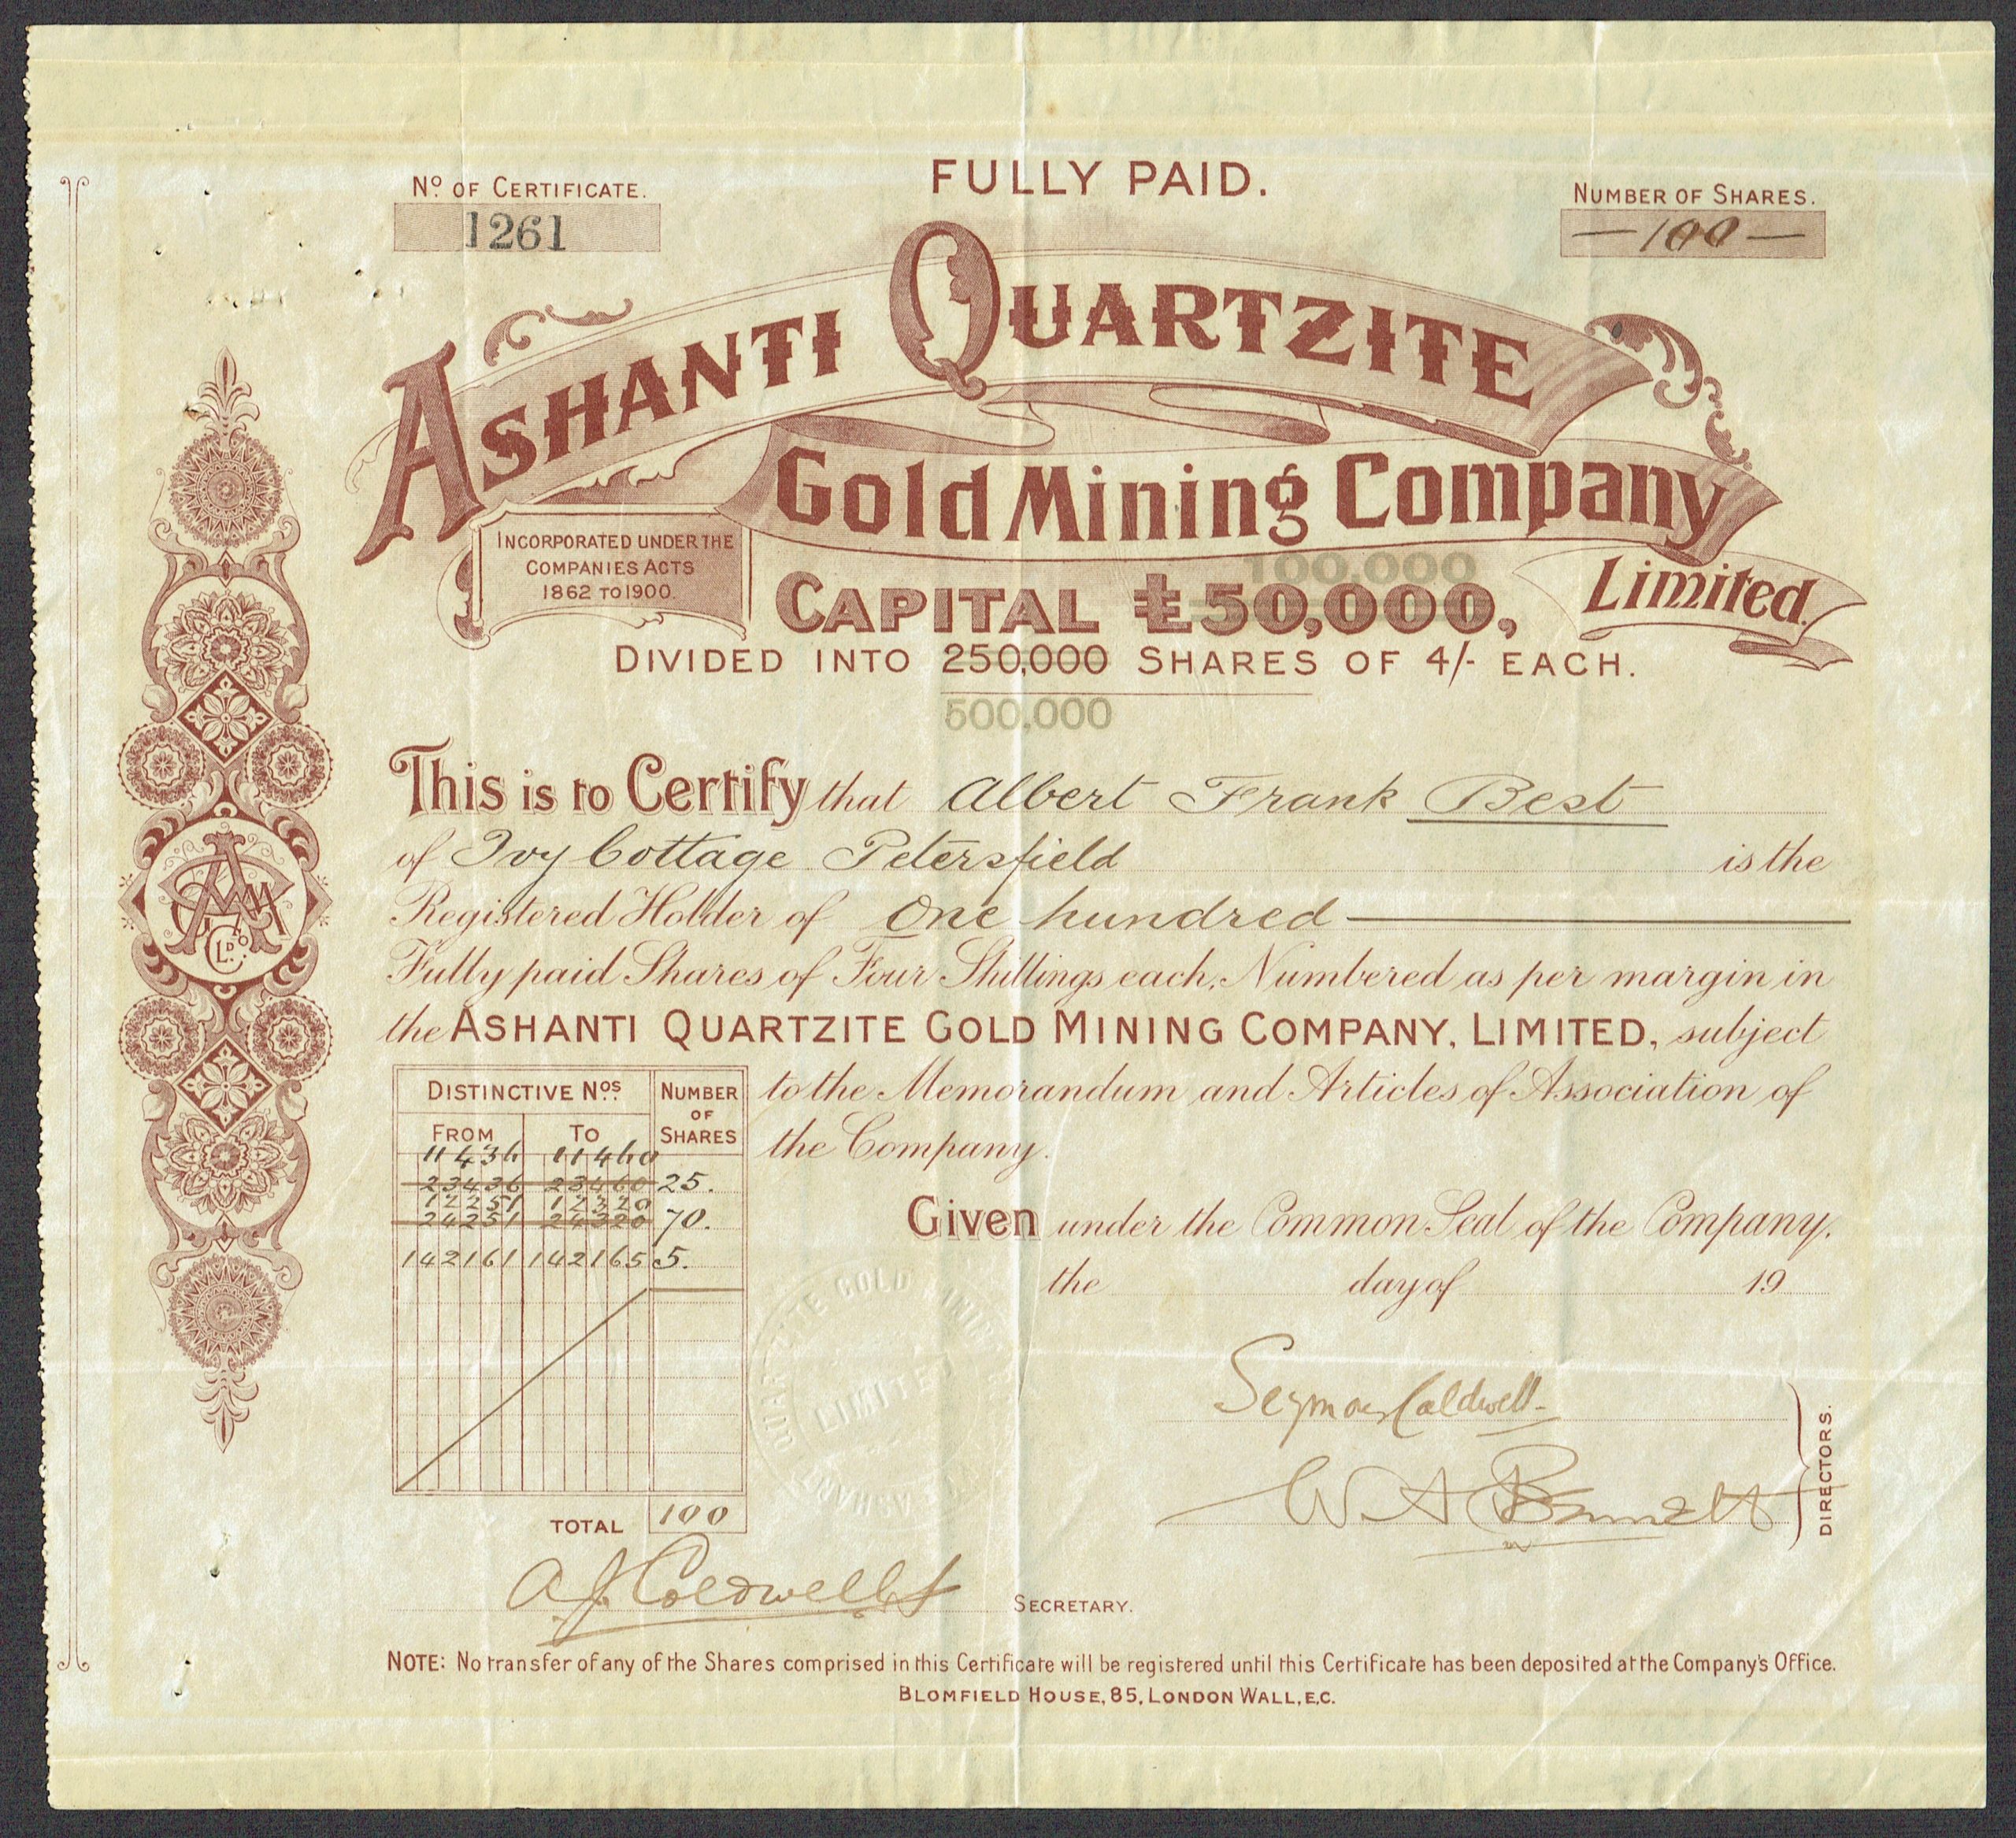 FULLY PAID.
No. OF CERTIFICATE.
1261
NUMBER OF SHARES.
— 100 —
ASHANTI QUARTZITE
Gold Mining Company
Limited.
INCORPORATED UNDER THE
COMPANIES ACTS
1862 TO 1900.
100,000
CAPITAL £50,000,
DIVIDED INTO 250,000 SHARES OF 4/- EACH.
500,000
This is to Certify that Albert Frank Best
of Ivy Cottage Petersfield is the
Registered Holder of One hundred
Fully paid Shares of Four Shillings each, Numbered as per margin in
the ASHANTI QUARTZITE GOLD MINING COMPANY, LIMITED, subject
to the Memorandum and Articles of Association of
the Company.
DISTINCTIVE Nos. NUMBER OF SHARES
FROM TO
11436 11460
23436 23460 25.
12251 12320
24251 24320 70.
142161 142165 5.
TOTAL 100
Given under the Common Seal of the Company,
the day of 19
GOLD MINING
LIMITED
Seymour Caldwell
W. A. Bennett
DIRECTORS.
SECRETARY.
NOTE: No transfer of any of the Shares comprised in this Certificate will be registered until this Certificate has been deposited at the Company's Office.
BLOMFIELD HOUSE, 85, LONDON WALL, E.C.